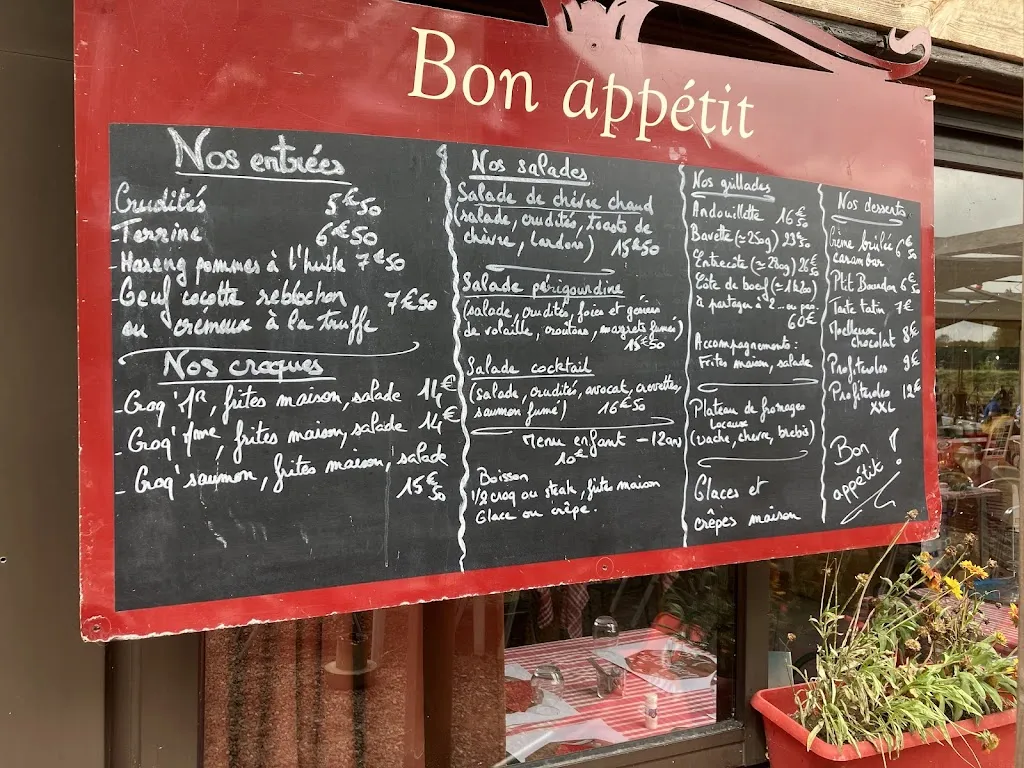 Bon appétit
Nos entrées
Crudités 5€50
Terrine 6€50
- Hareng pommes à l'huile 7€50
- Oeuf cocotte reblochon 7€50
ou crémeux à la truffe
Nos croques
- Croq' Mr, frites maison, salade 14€
- Croq' Mme, frites maison, salade 14€
- Croq' saumon, frites maison, salade
15€50
Nos salades
Salade de chèvre chaud
(salade, crudités, toasts de
chèvre, lardons) 15€50
Salade périgourdine
(salade, crudités, foies et gésiers
de volaille, croutons, magrets fumé)
15€50
Salade cocktail
(salade, crudités, avocat, crevettes,
saumon fumé) 16€50
Menu enfant -12ans
10€
Boisson
1/2 croq ou steak, frite maison
Glace ou crêpe.
Nos grillades
Andouillette 16€50
Bavette (≃250g) 23€50
Entrecôte (≃280g) 26€50
Côte de boeuf (≃1k200)
à partager à 2... ou pas
60€
Accompagnements:
Frites maison, salade
Plateau de fromages
locaux
(vache, chèvre, brebis)
Glaces et
crêpes maison
Nos desserts
Crème brûlée 6€50
carambar
Ptit Baudon 6€50
Tarte tatin 7€
Moelleux
chocolat 8€
Profiteroles 9€
Profiteroles 12€
XXL
Bon
appétit !